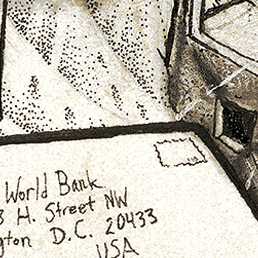 World Bank
H. Street NW
D.C. 20433
USA